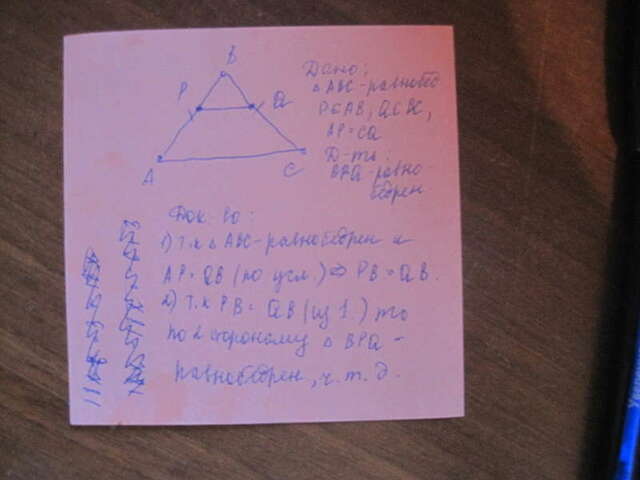 B
P
Q
A
C
Дано:
△ABC-равнобед
P∈AB; Q∈BC,
AP=CQ
Д-ть:
BPQ-равно-
бедрен
Док-во:
1) т.к △ABC-равнобедрен и
AP=QB (по усл.) ⇒ PB=QB.
2) т.к PB=QB (из 1.) то
по 2 сторонам △BPQ-
равнобедрен, ч.т.д.